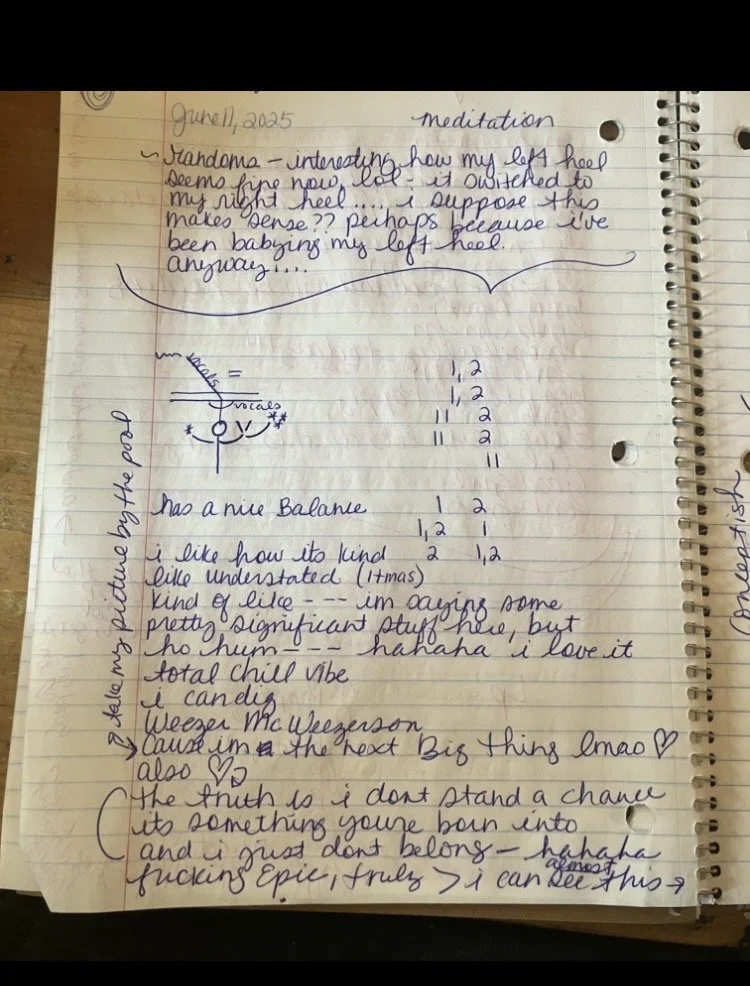 June 11, 2025 meditation
~ randoms - interesting how my left heel
seems fine now, lol - it switched to
my right heel.... i suppose this
makes sense?? perhaps because i've
been babying my left heel.
anyway....
vocals =
vocals
* V **
1, 2
1, 2
11 2
11 2
11
has a nice Balance 1 2
1,2 1
i like how its kind 2 1,2
like understated (
kind of like - -- im saying some
pretty significant stuff here, but
ho hum - - - hahaha i love it
total chill vibe
i can dig
Weezer McWeezerson
take my picture by the pool
Cause im the next Big thing lmao ♡
also ♡
(the truth is i dont stand a chance
its something you're born into
and i just dont belong - hahaha
almost
fucking Epic, truly > i can see this →
Conceptish